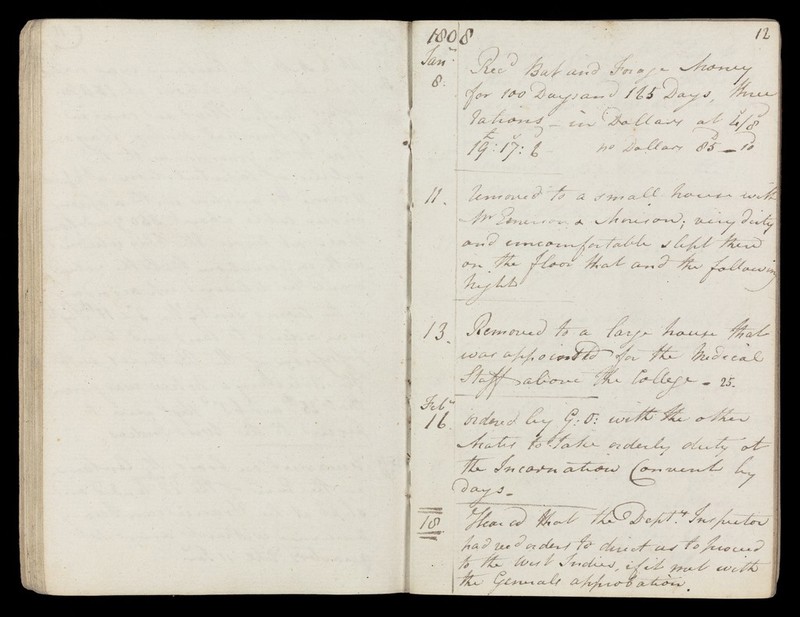 1808
12
Jany
8. Recd Bat and Forage Money
for 100 Days and 165 Days, three
Rations - in Dollars at 4/8
£19:17:6 no Dollars 85 - 10
11. removed to a small house with
Mr Emerson & Morison; very dirty
and uncomfortable slept there
on the floor that and the following
nights
13. Removed to a large house that
was appointed for the Medical
Staff above the College - 25.
Feby
16. ordered by G:O: with the other
Mates to take orderly duty at
the Incarnation Convent by
days -
18 Heared that the Depty Inspector
had recd orders to direct us to proceed
to the West Indies, if it met with
the Generals approbation.